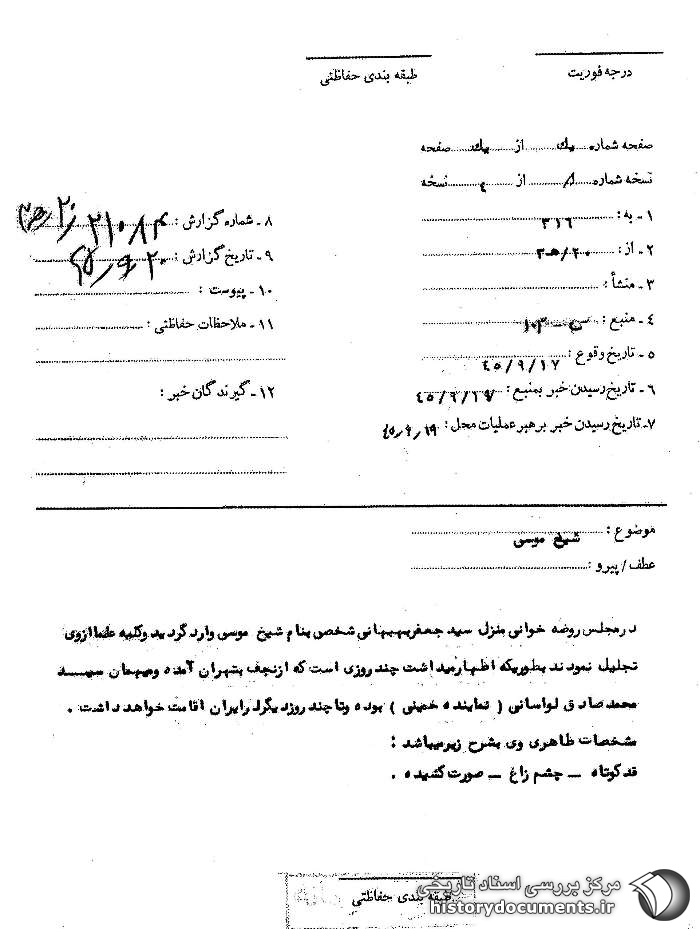 درجه فوریت
طبقه بندی حفاظتی
صفحه شماره یک از یک صفحه
نسخه شماره ۸ از ٤ نسخه
۱ـ به : ۳۱٦
۲ـ از : ۲۰/ه۳
۳ـ منشأ :
٤ـ منبع :
۵ـ تاریخ وقوع : ٤۵/۹/۱۷
٦ـ تاریخ رسیدن خبر بمنبع : ٤۵/۹/۱۷
۷ـ تاریخ رسیدن خبر برهبر عملیات محل : ٤۵/۹/۱۹
۸ـ شماره گزارش : ۲۱۰۸۴
۹ـ تاریخ گزارش : ۴۵/۹/۲۰
۱۰ـ پیوست :
۱۱ـ ملاحظات حفاظتی :
۱۲ـ گیرندگان خبر :
موضوع : شیخ موسی
عطف/ پیرو :
در مجلس روضه خوانی منزل سید جعفر بهبهانی شخص بنام شیخ موسی وارد گردید و کلیه علما از وی
تجلیل نمودند بطوریکه اظهار میداشت چند روزی است که از نجف بتهران آمده و میهمان سیــــد
محمد صادق لواسانی ( نماینده خمینی ) بوده و تا چند روز دیگر در ایران اقامت خواهد داشت .
مشخصات ظاهری وی بشرح زیر میباشد :
قد کوتاه ــ چشم زاغ ــ صورت کشیده .
طبقه بندی حفاظتی
مرکز بررسی اسناد تاریخی
historydocuments.ir